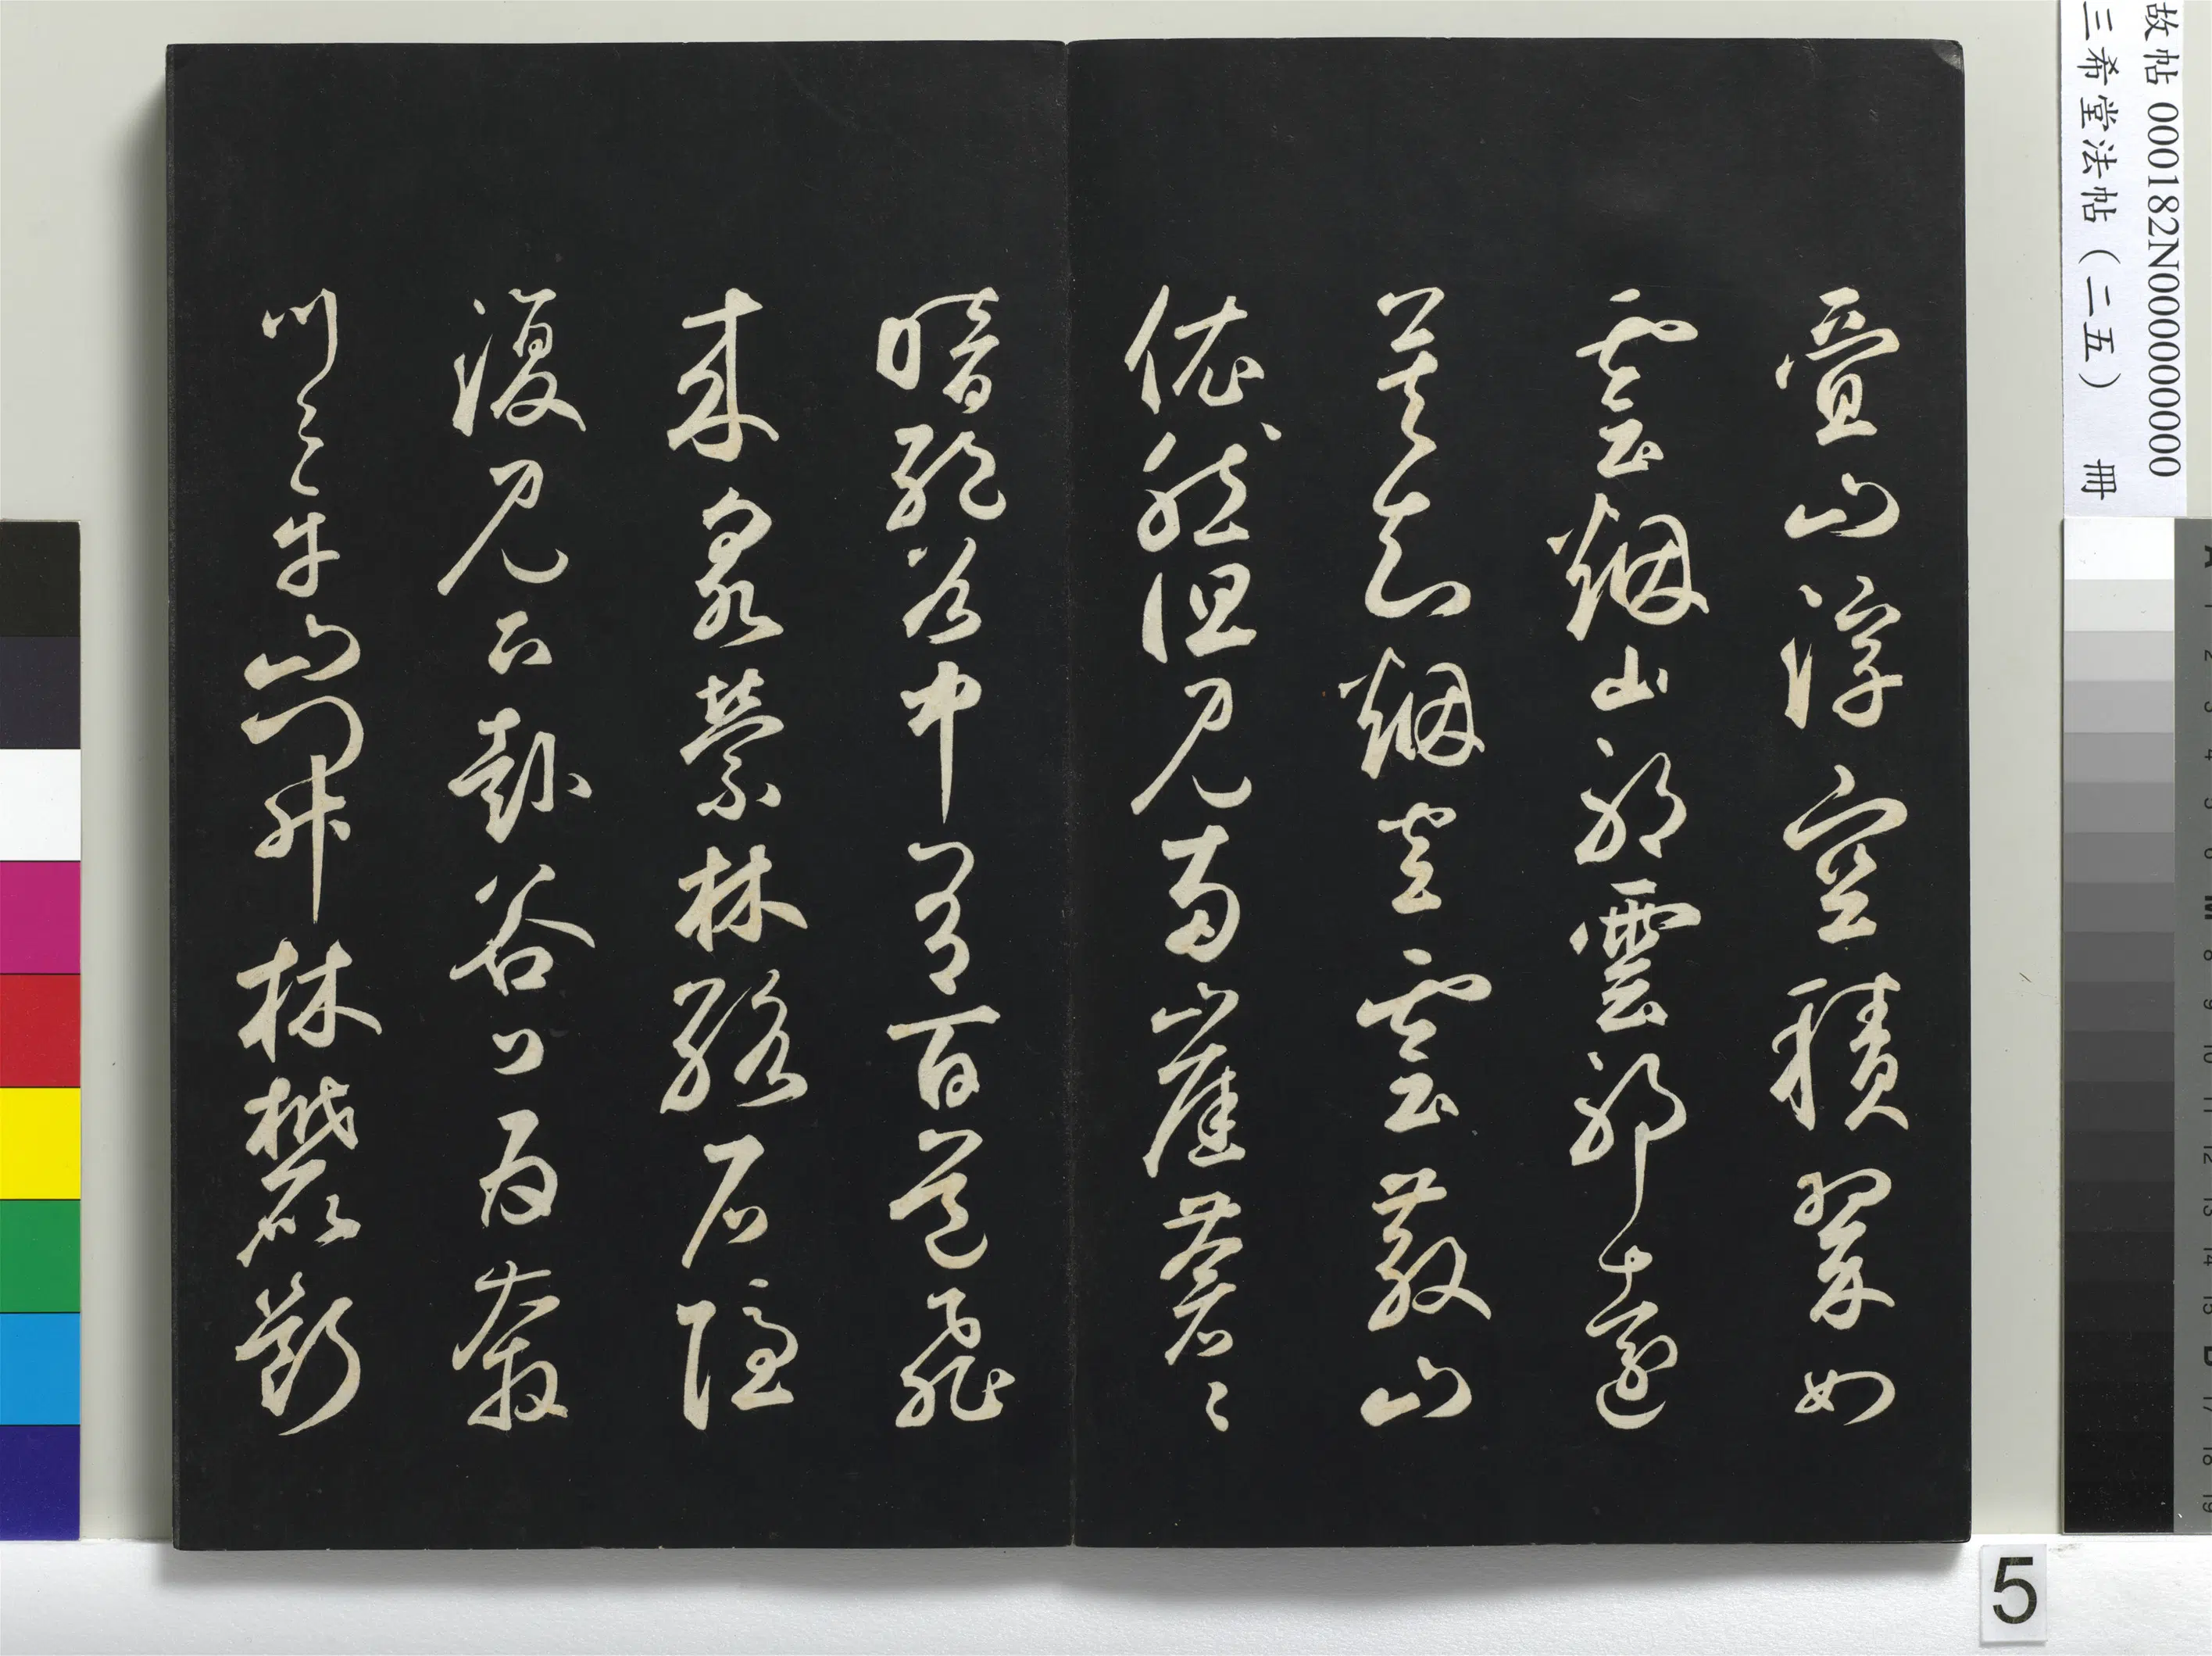 疊山浮空積翠如
雲烟山耶雲耶遠
莫知烟空雲散山
依然但見兩崖蒼々
暗絕谷中有百道飛
來泉縈林絡石隱
復見下赴谷口為奔
川々平山開林麓斷
故帖 000182N000000000
三希堂法帖（二五） 冊
5